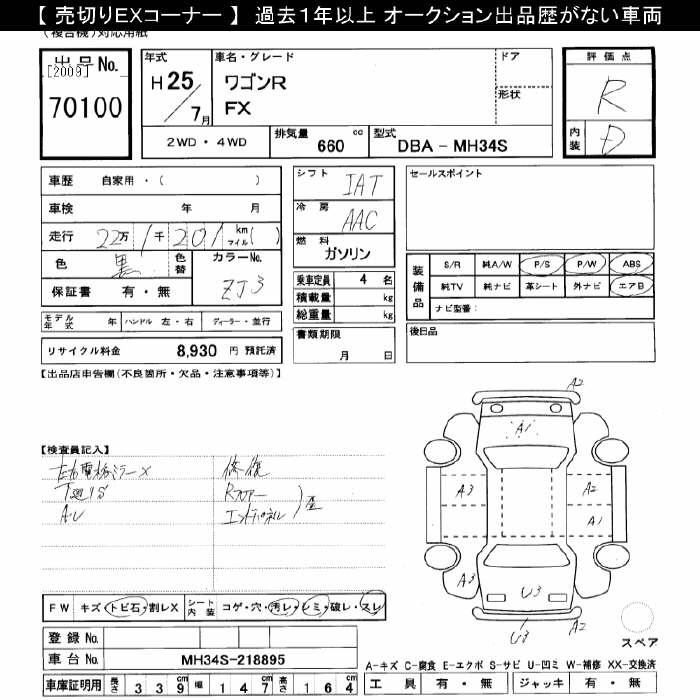 【 売切りEXコーナー 】 過去1年以上 オークション出品歴がない車両
(複合機)対応用紙
出品No.
[2009]
70100
年式
H25/7月
車名・グレード
ワゴンR
FX
ドア
形状
2WD・4WD
排気量 660 cc
型式 DBA-MH34S
評価点
R
内装 D
車歴 自家用・( )
車検 年 月
走行 22万1千201 km マイル( )
色 黒 色替
カラーNo. ZJ3
保証書 有・無
モデル年式 年 ハンドル 左・右 ディーラー・並行
リサイクル料金 8,930 円 預託済
シフト IAT
冷房 AAC
燃料 ガソリン
乗車定員 4 名
積載量 kg
総重量 kg
書類期限
月 日
セールスポイント
装備品
S/R 純A/W P/S P/W ABS
純TV 純ナビ 革シート 外ナビ エアB
ナビ型番:
後日品
【出品店申告欄(不良箇所・欠品・注意事項等)】
【検査員記入】
左右電格ミラーX
下廻りS
AU
修復
Rフロアー
エンドパネル
歪
A2
A1
A3
A2
A1
A3
U3
A2
U3
スペア
FW キズ・トビ石・割レX
シート内装 コゲ・穴・汚レ・シミ・破レ・スレ
登録No.
車台No. MH34S-218895
車庫証明用 長さ 339cm 幅 147cm 高さ 164cm
A-キズ C-腐食 E-エクボ S-サビ U-凹ミ W-補修 XX-交換済
工具 有・無 ジャッキ 有・無